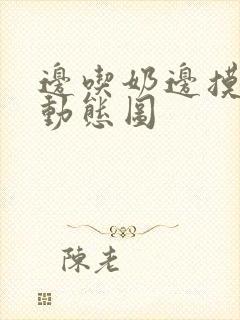 邊喫奶邊摸
動態圖
陳老